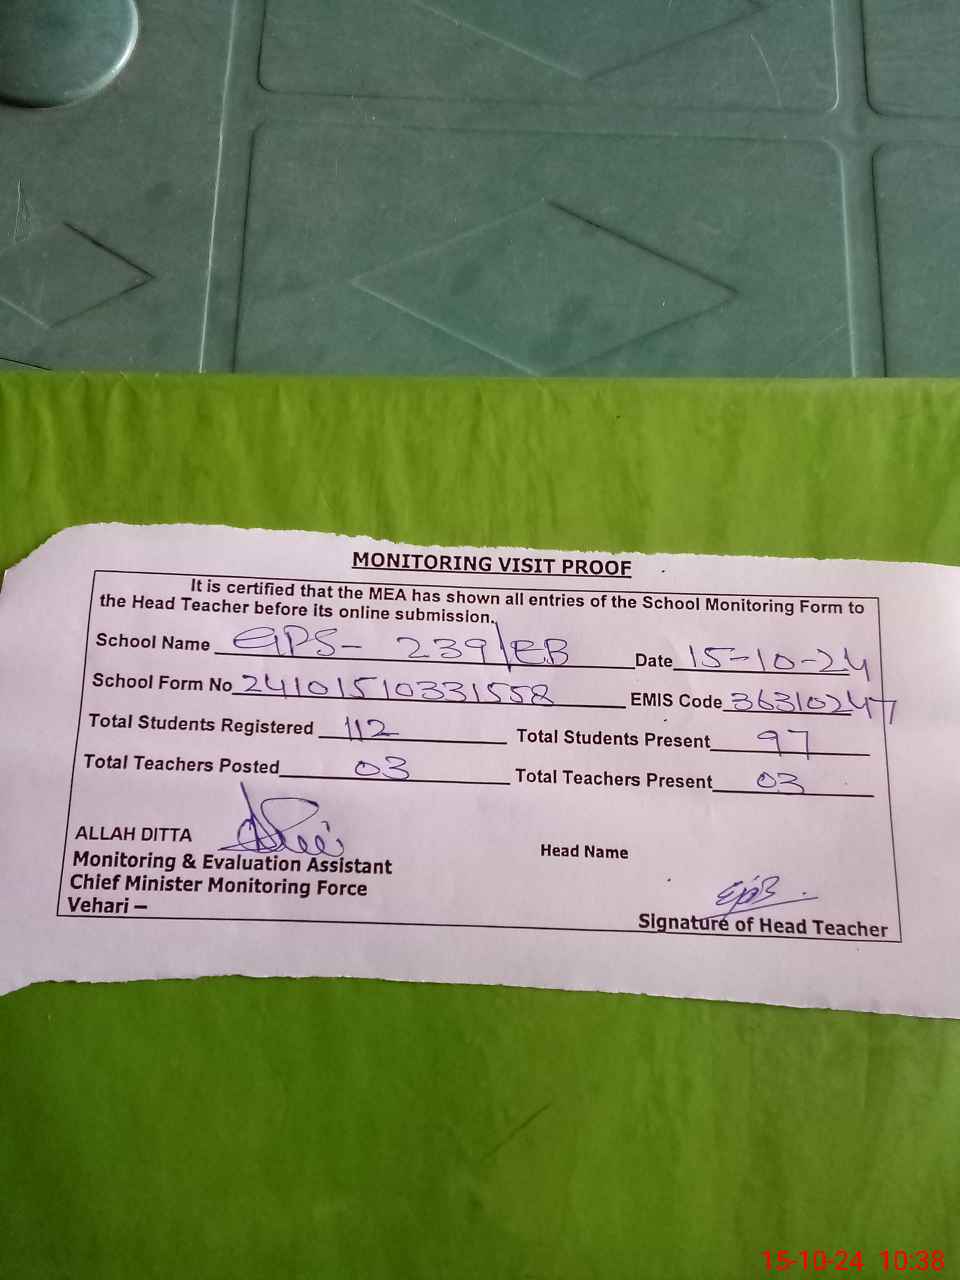 MONITORING VISIT PROOF
It is certified that the MEA has shown all entries of the School Monitoring Form to
the Head Teacher before its online submission.
School Name GPS- 239/EB Date 15-10-24
School Form No 24101510331558 EMIS Code 36310247
Total Students Registered 112 Total Students Present 97
Total Teachers Posted 03 Total Teachers Present 03
ALLAH DITTA
Monitoring & Evaluation Assistant Head Name
Chief Minister Monitoring Force
Vehari –
Signature of Head Teacher
15-10-24 10:38